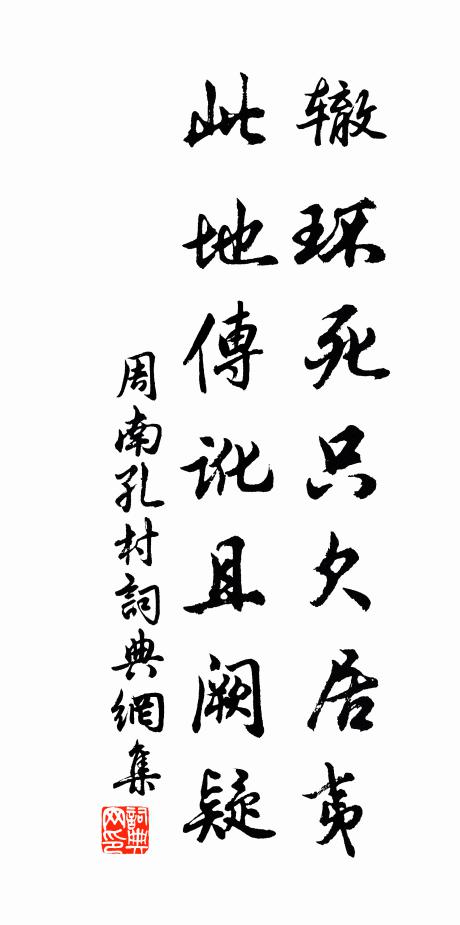 辙环死只欠居夷
此地傳訛且阙疑
周南孔村詞典網集
詞典网印